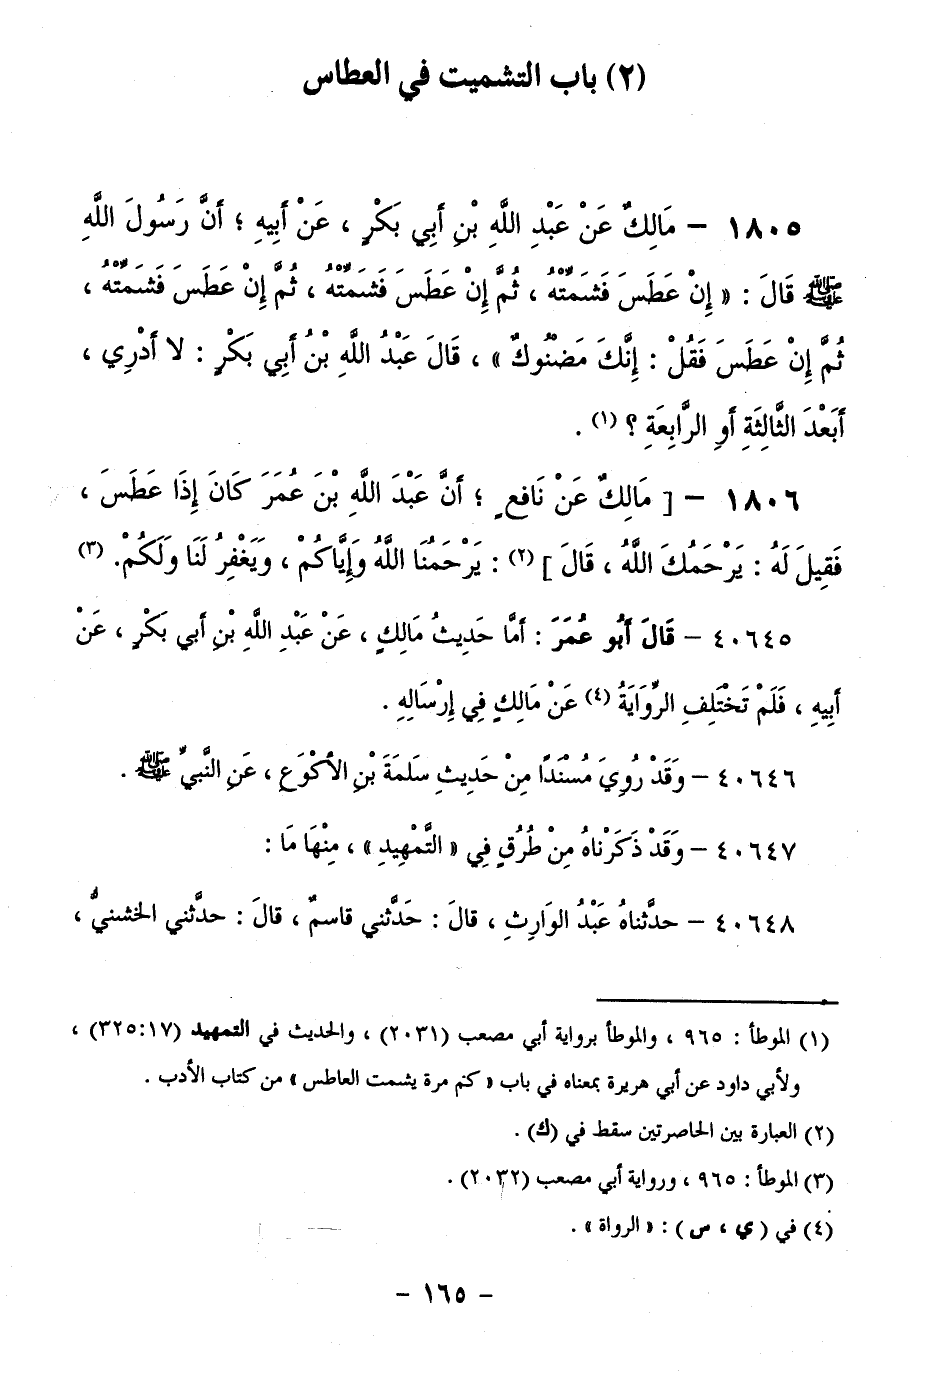 (٢) باب التشميت في العطاس
١٨٠٥ – مَالِكٌ عَنْ عَبْدِ اللَّهِ بْنِ أَبِي بَكْرٍ ، عَنْ أَبِيهِ ؛ أَنَّ رَسُولَ اللَّهِ
ﷺ قَالَ : « إِنْ عَطَسَ فَشَمِّتْهُ ، ثُمَّ إِنْ عَطَسَ فَشَمِّتْهُ ، ثُمَّ إِنْ عَطَسَ فَشَمِّتْهُ ،
ثُمَّ إِنْ عَطَسَ فَقُلْ : إِنَّكَ مَضْنُوكٌ » ، قَالَ عَبْدُ اللَّهِ بْنُ أَبِي بَكْرٍ : لا أَدْرِي ،
أَبَعْدَ الثَّالِثَةِ أَوِ الرَّابِعَةِ ؟ (١) .
١٨٠٦ – [ مَالِكٌ عَنْ نَافِعٍ ؛ أَنَّ عَبْدَ اللَّهِ بْنَ عُمَرَ كَانَ إِذَا عَطَسَ ،
فَقِيلَ لَهُ : يَرْحَمُكَ اللَّهُ ، قَالَ ] (٢) : يَرْحَمُنَا اللَّهُ وَإِيَّاكُمْ ، وَيَغْفِرُ لَنَا وَلَكُمْ. (٣)
٤٠٦٤٥ – قَالَ أَبُو عُمَرَ : أَمَّا حَدِيثُ مَالِكٍ ، عَنْ عَبْدِ اللَّهِ بْنِ أَبِي بَكْرٍ ، عَنْ
أَبِيهِ ، فَلَمْ تَخْتَلِفِ الرِّوَايَةُ (٤) عَنْ مَالِكٍ فِي إِرْسَالِهِ .
٤٠٦٤٦ – وَقَدْ رُوِيَ مُسْنَدًا مِنْ حَدِيثِ سَلَمَةَ بْنِ الأَكْوَعِ ، عَنِ النَّبِيِّ ﷺ .
٤٠٦٤٧ – وَقَدْ ذَكَرْنَاهُ مِنْ طُرُقٍ فِي « التَّمْهِيدِ » ، مِنْهَا مَا :
٤٠٦٤٨ – حدَّثناهُ عَبْدُ الوَارِثِ ، قالَ : حَدَّثني قاسمٌ ، قالَ : حدَّثني الخشنيُّ ،
(١) الموطأ : ٩٦٥ ، والموطأ برواية أبي مصعب (٢٠٣١) ، والحديث في التمهيد (٣٢٥:١٧) ،
ولأبي داود عن أبي هريرة بمعناه في باب « كم مرة يشمت العاطس » من كتاب الأدب .
(٢) العبارة بين الحاصرتين سقط في (ك) .
(٣) الموطأ : ٩٦٥ ، ورواية أبي مصعب (٢٠٣٢) .
(٤) في ( ي ، س ) : « الرواة » .
– ١٦٥ –